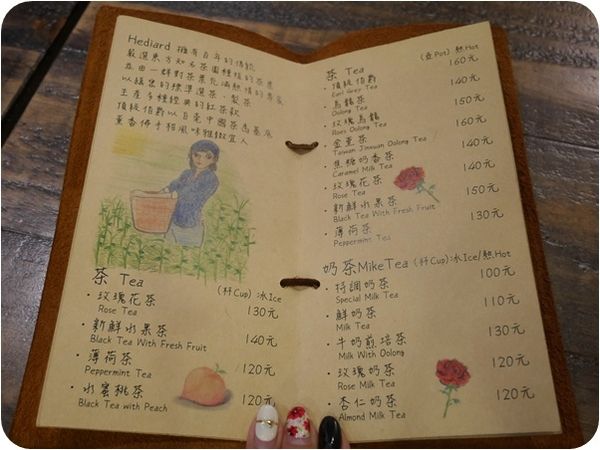 Hediard 擁有百年的傳統
嚴選東方知名茶園種植的茶葉
並由一群對茶葉充滿熱情的專家
以嚴密的標準選茶、製茶
生產多種經典的紅茶款
頂級伯爵以白毫中國茶為基底
薰香佛手柑風味雅緻宜人
茶 Tea (杯Cup) 冰Ice
・玫瑰花茶 130元
Rose Tea
・新鮮水果茶 140元
Black Tea With Fresh Fruit
・薄荷茶 120元
Peppermint Tea
・水蜜桃茶 120元
Black Tea with Peach
茶 Tea (壺Pot) 熱Hot
・頂級伯爵 160元
Earl Grey Tea
・烏龍茶 140元
Oolong Tea
・玫瑰烏龍 150元
Roes Oolong Tea
・金萱茶 160元
Taiwan Jinxuan Oolong Tea
・焦糖奶香茶 140元
Caramel Milk Tea
・玫瑰花茶 140元
Rose Tea
・新鮮水果茶 150元
Black Tea With Fresh Fruit
・薄荷茶 130元
Peppermint Tea
奶茶MikeTea (杯Cup)冰Ice/熱Hot
・特調奶茶 100元
Special Milk Tea
・鮮奶茶 110元
Milk Tea
・牛奶煎焙茶 130元
Milk With Oolong
・玫瑰奶茶 120元
Rose Milk Tea
・杏仁奶茶 120元
Almond Milk Tea